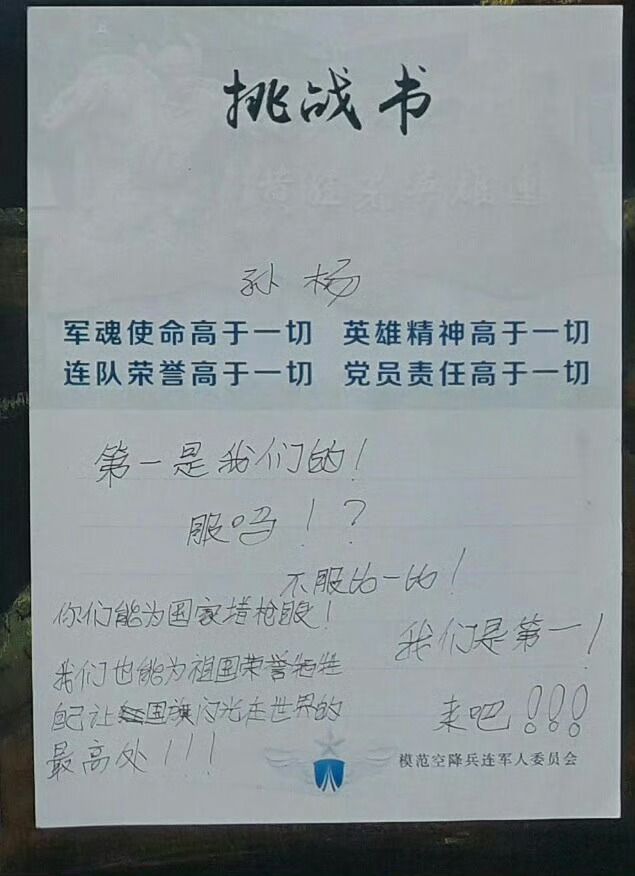 挑战书
黄继光英雄连
孙杨
军魂使命高于一切 英雄精神高于一切
连队荣誉高于一切 党员责任高于一切
第一是我们的！
服吗！？
不服比一比！
你们能为国家堵枪眼！
我们是第一！
我们也能为祖国荣誉牺牲
自己让国旗闪光在世界的
最高处！！！
来吧！！！
模范空降兵连军人委员会